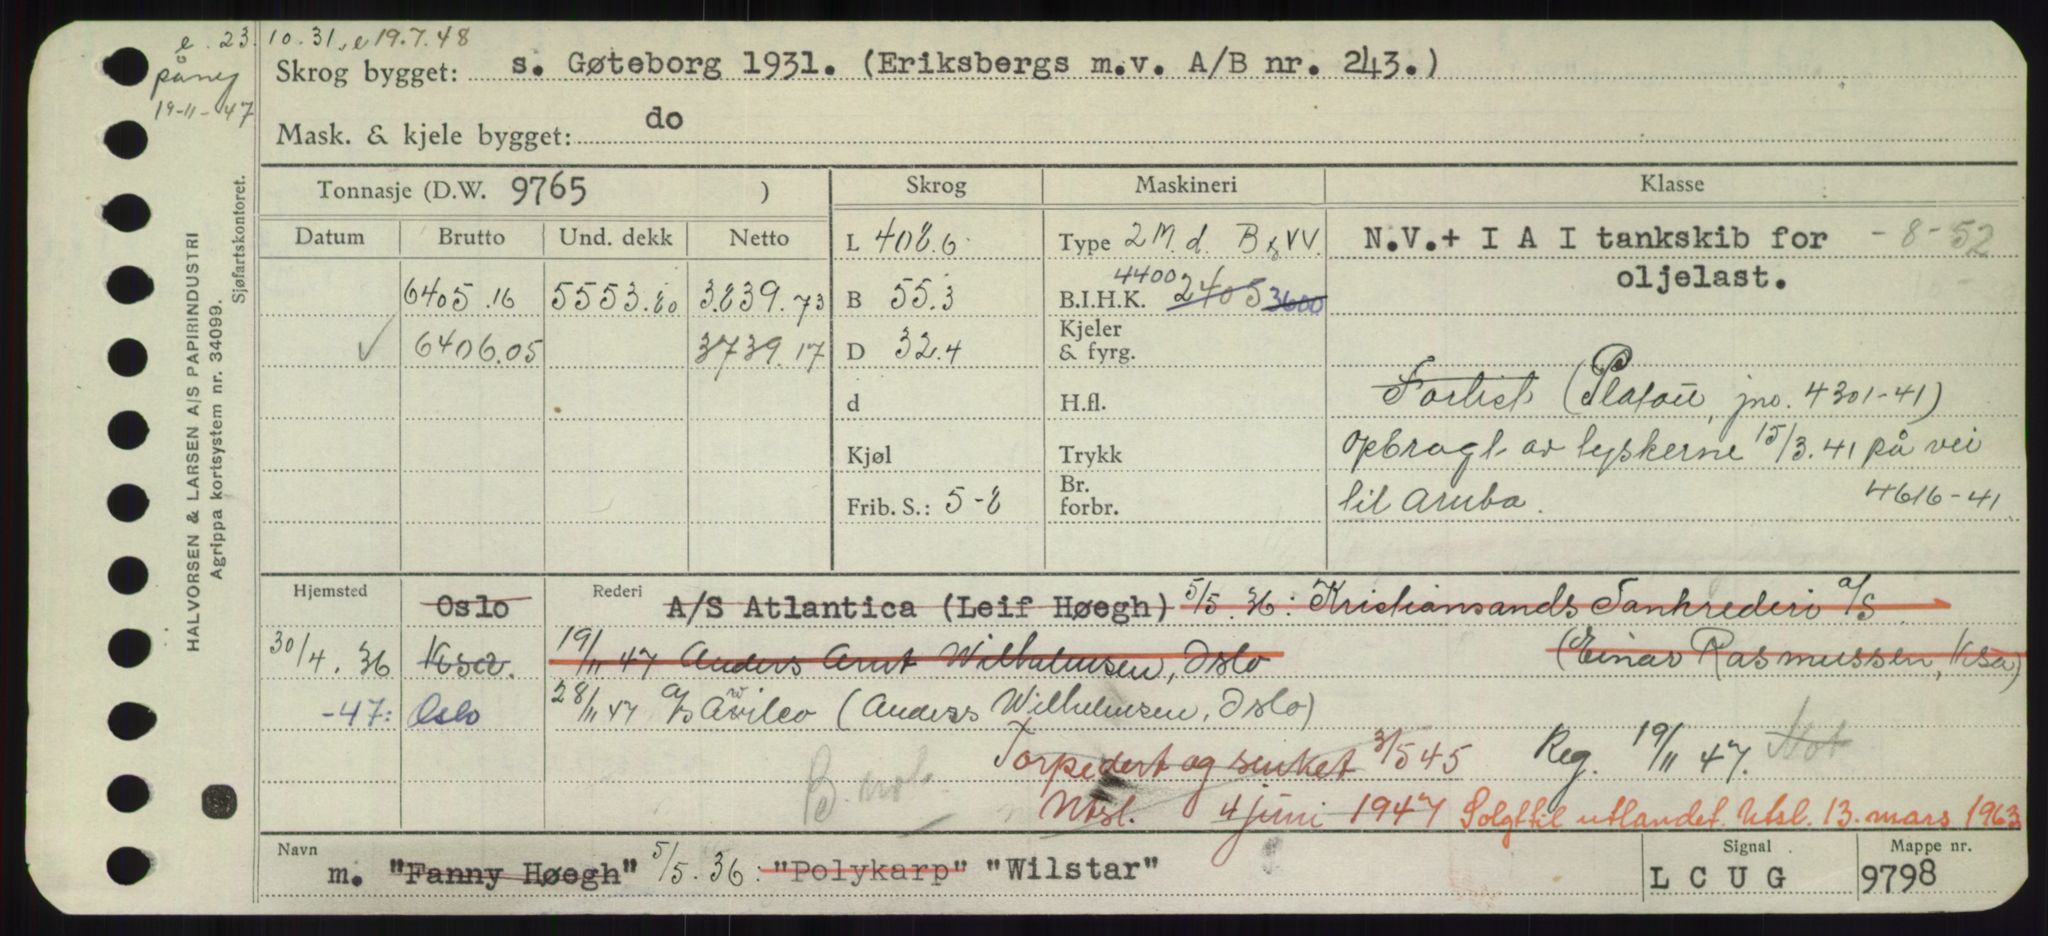 e. 23.10.31, e 19.7.48
påny
19-11-47
Skrog bygget: s. Gøteborg 1931. (Eriksbergs m.v. A/B nr. 243.)
Mask. & kjele bygget: do
HALVORSEN & LARSEN A/S PAPIRINDUSTRI
Agrippa kortsystem nr. 34099.
Sjøfartskontoret.
Tonnasje (D.W. 9765 )
Datum Brutto Und. dekk Netto
6405.16 5553.80 3839.73
✓ 6406.05 3739.17
Skrog
L 408.6
B 55.3
D 32.4
d
Kjøl
Frib. S.: 5-8
Maskineri
Type 2 M. d. B & W.
4400
B.I.H.K. 2405 3600
Kjeler
& fyrg.
H.fl.
Trykk
Br.
forbr.
Klasse
N.V.+ I A I tankskib for - 8 - 52
oljelast.
Forlist (Platou, jno. 4301-41)
opbragt av tyskerne 15/3.41 på vei
til Aruba. 4616-41
Hjemsted Oslo Rederi A/S Atlantica (Leif Høegh) 5/5.36: Kristiansands Tankrederi a/s
30/4.36 Ksa. 19/11 47 Anders Arnt Wilhelmsen, Oslo (Einar Rasmussen, Ksa)
-47: Oslo 28/11 47 a/s Awilco (Anders Wilhelmsen, Oslo)
Torpedert og senket 3/5 45 Reg. 19/11 47. Not
B. not.
Utsl. 4 juni 1947 Solgt til utlandet. Utsl. 13. mars 1963
Navn m. "Fanny Høegh" 5/5.36: "Polykarp" "Wilstar"
Signal L C U G
Mappe nr. 9798